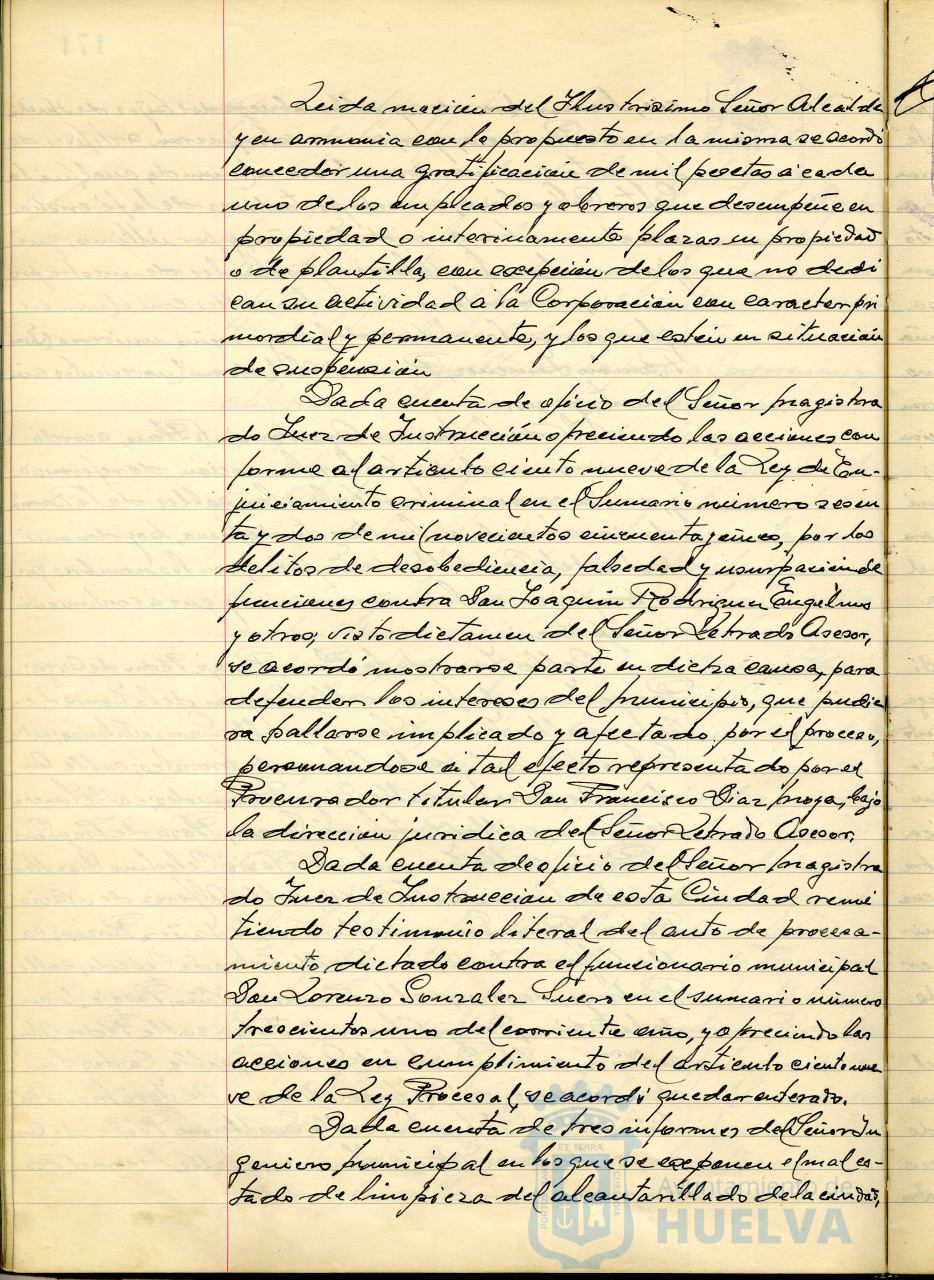 Leida moción del Ilustrísimo Señor Alcalde
y en armonia con lo propuesto en la misma se acordó
conceder una gratificación de mil pesetas a cada
uno de los empleados y obreros que desempeñe en
propiedad o interinamente plazas en propiedad
o de plantilla, con excepción de los que no dedi
can su actividad a la Corporación con caracter pri
mordial y permanente, y los que estén en situación
de suspensión
Dada cuenta de oficio del Señor Magistra
do Juez de Instrucción ofreciendo las acciones con
forme al articulo ciento nueve de la Ley de En-
juiciamiento criminal en el Sumario número sesen
ta y dos de mil novecientos cincuenta y cinco, por los
delitos de desobediencia, falsedad y usurpación de
funciones contra Don Joaquin Rodriguez Engelmo
y otros; visto dictamen del Señor Letrado Asesor,
se acordó mostrarse parte en dicha causa, para
defender los intereses del Municipio, que pudie
ra hallarse implicado y afectado por el proceso,
personandose a tal efecto representado por el
Procurador titular Don Francisco Diaz Moya, bajo
la dirección juridica del Señor Letrado Asesor.
Dada cuenta de oficio del Señor Magistra
do Juez de Instrucción de esta Ciudad remi
tiendo testimonio literal del auto de procesa-
miento dictado contra el funcionario municipal
Don Lorenzo Gonzalez Suero en el sumario número
trescientos uno del corriente año, y ofreciendo las
acciones en cumplimiento del articulo ciento nue
ve de la Ley Procesal, se acordó quedar enterado.
Dada cuenta de tres informes del Señor In
geniero Municipal en los que se exponen el mal es-
tado de limpieza del alcantarillado de la ciudad,
Ayuntamiento de
HUELVA